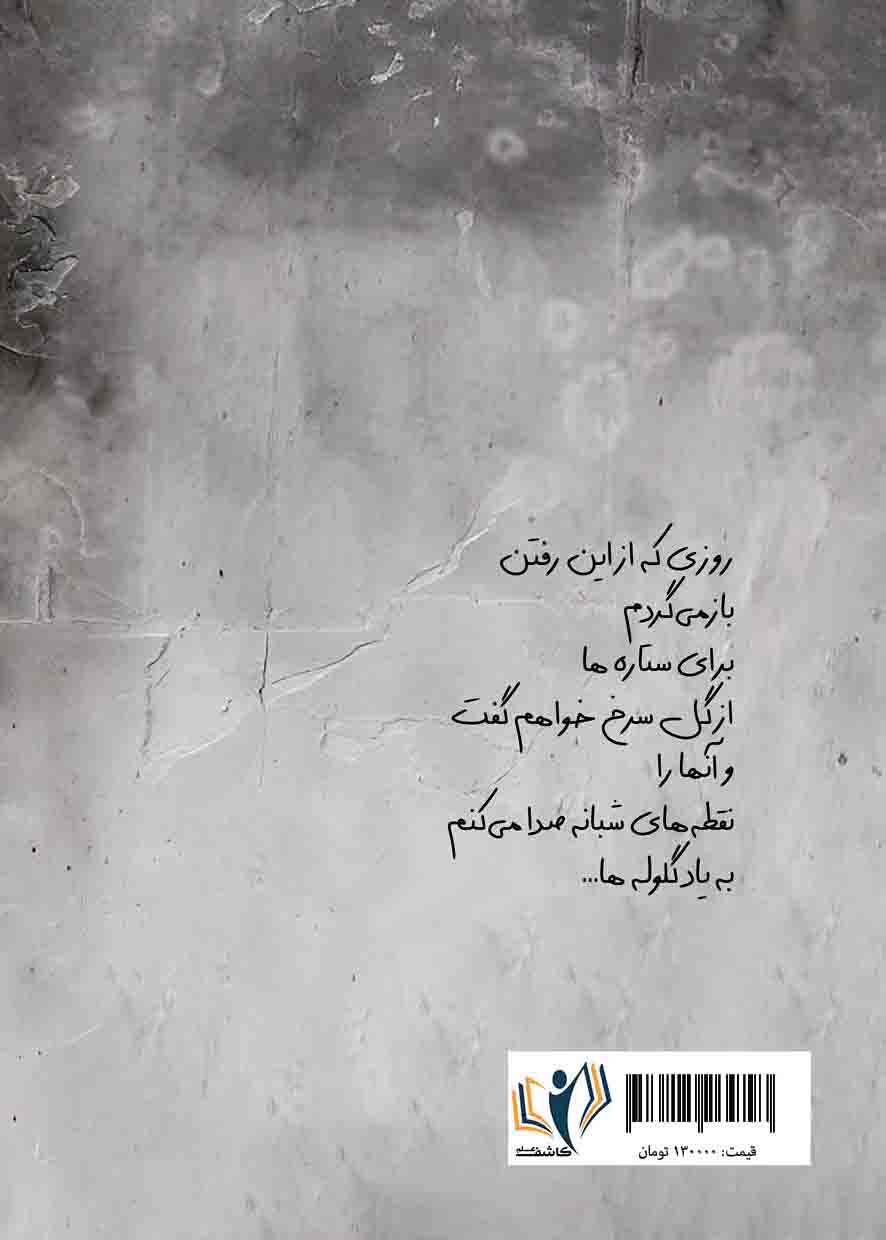 روزی که از این رفتن
بازمی‌گردم
برای ستاره ها
از گل سرخ خواهم گفت
و آنها را
نقطه‌های شبانه صدا می‌کنم
به یاد گلوله ها...
کاشف علم
قیمت: ۱۳۰۰۰۰ تومان